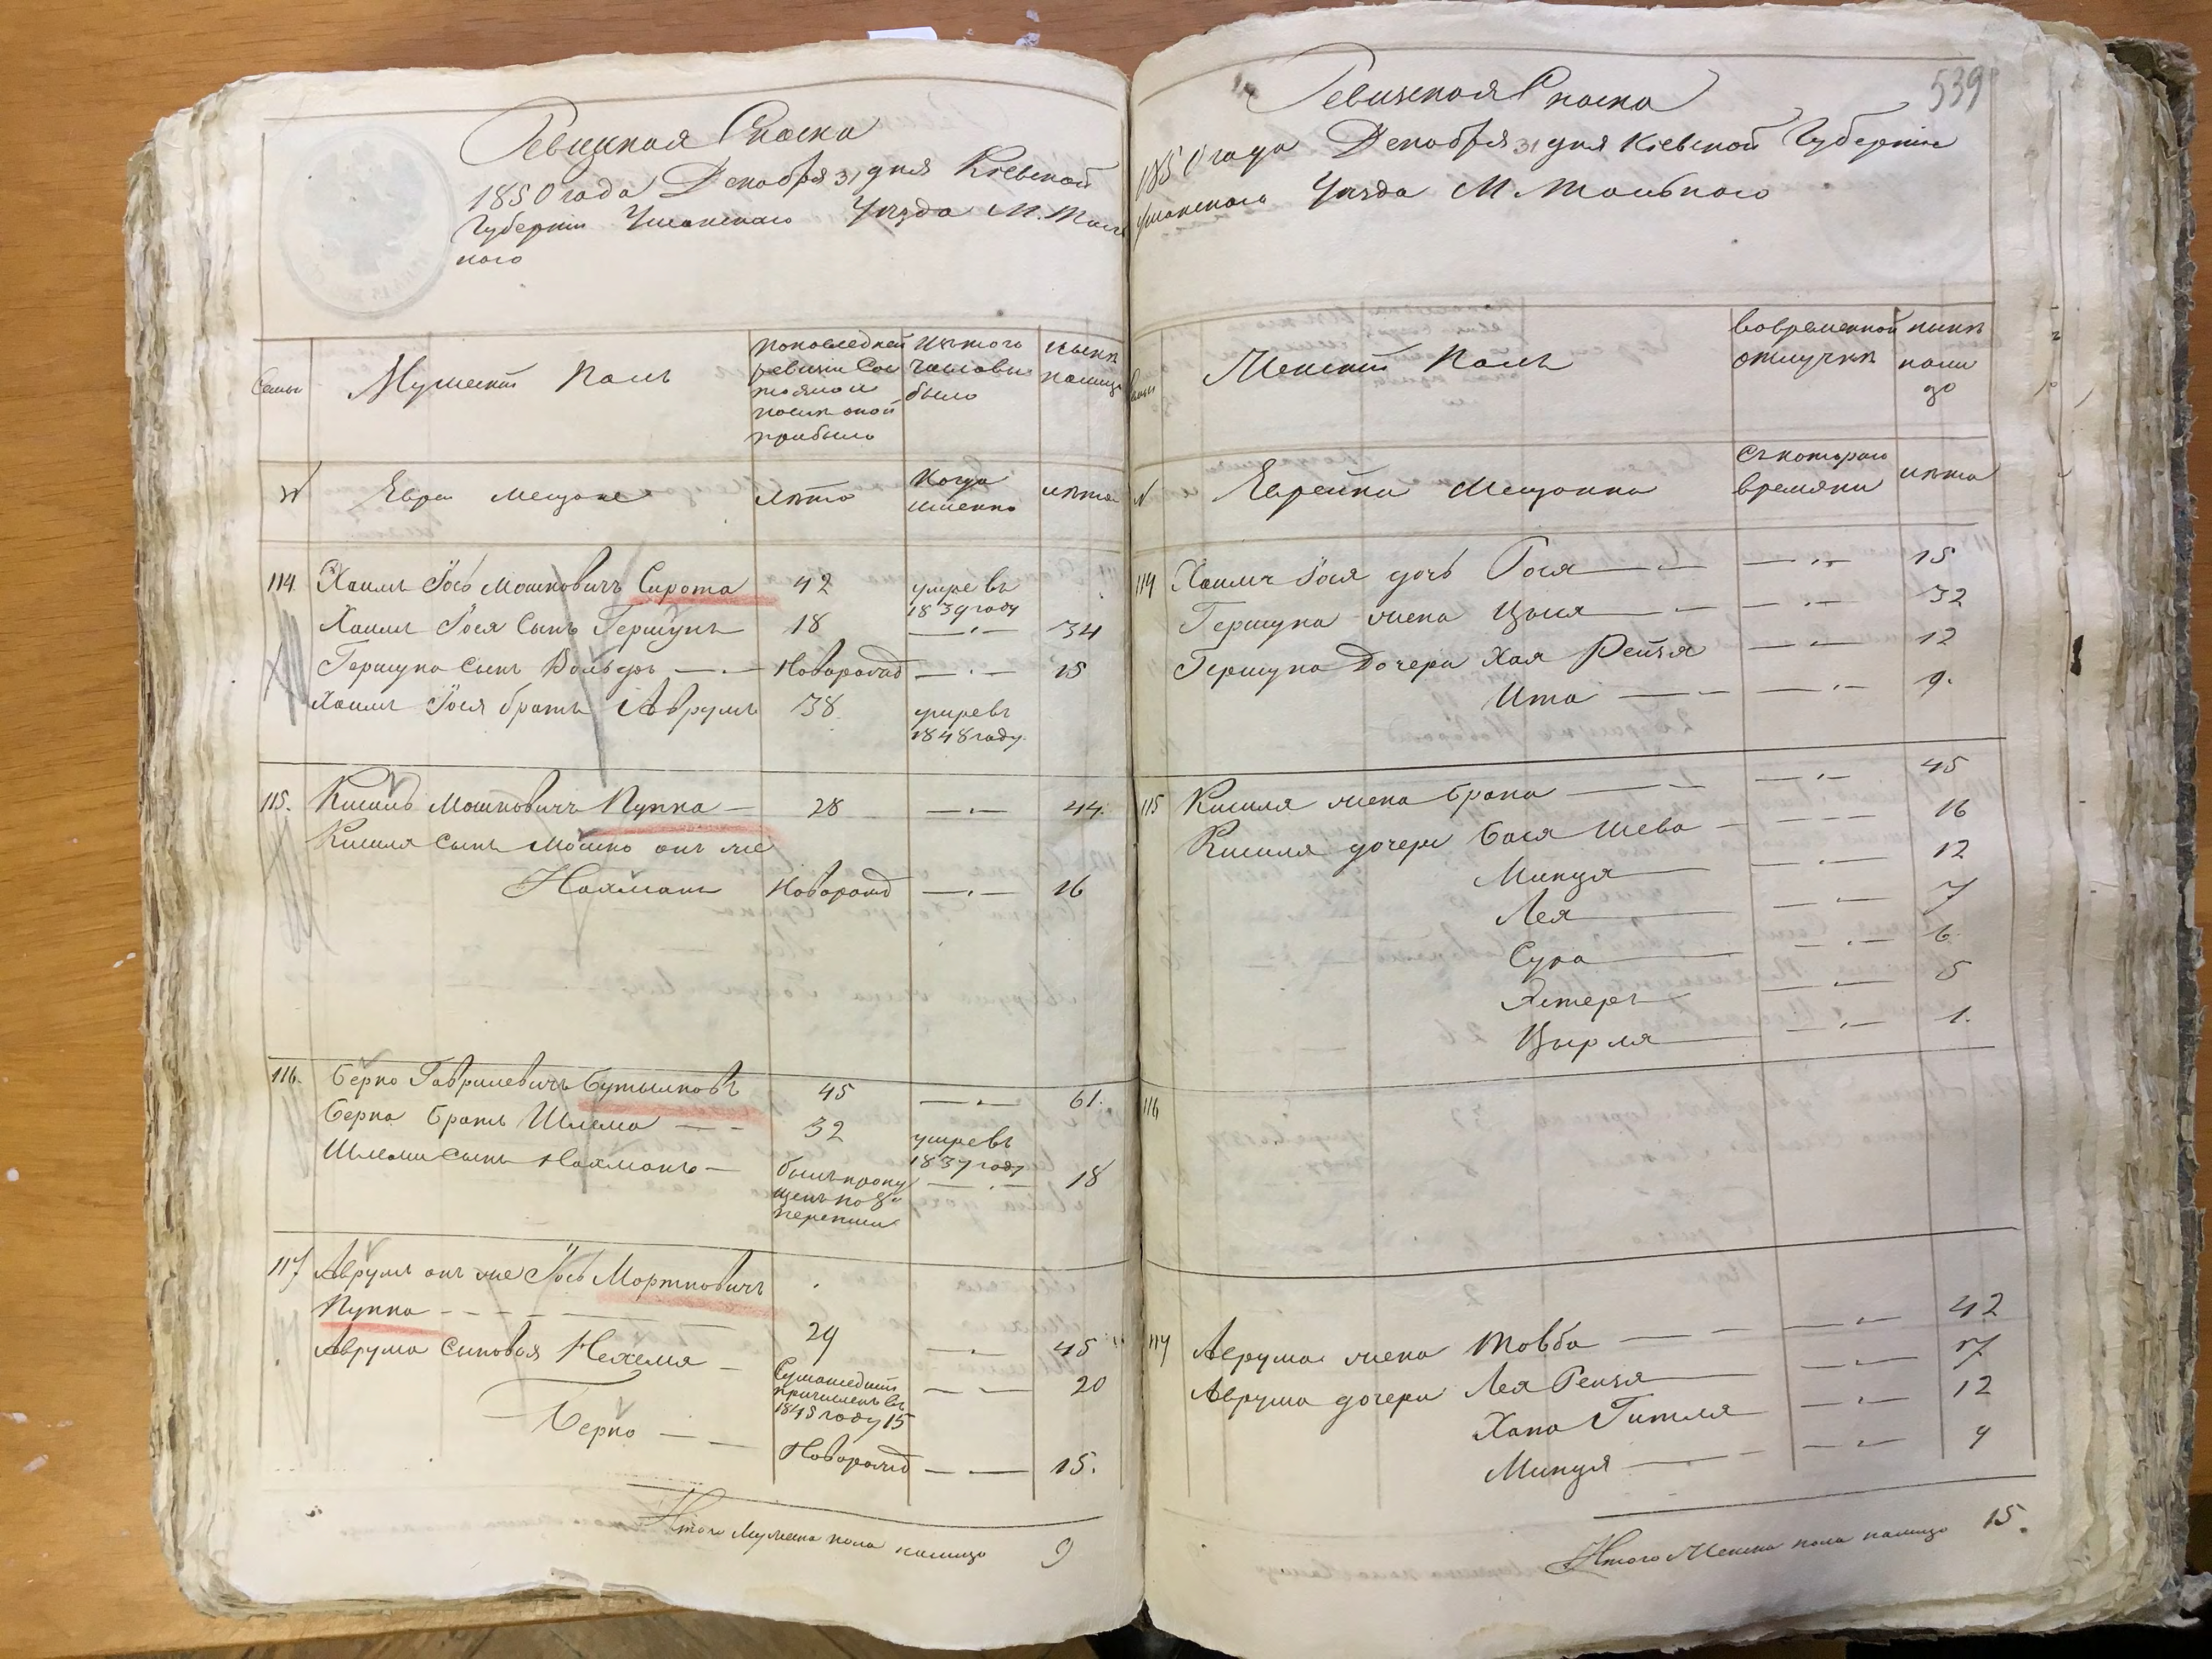 Ревизская Сказка
1850 года Декабря 31 дня Кіевской
Губерніи Уманского Уѣзда М. Таль
ного
Семьи
Мужескій Полъ
попоследней
ревизіи Сос
тояло и
послѣ оной
прибыло
Изтого
числавы
было
Нынѣ
налицо
N
Евреи мещане
Лѣта
Когда
именно
Лѣта
114. Хаимъ Іось Мошковичъ Сирота 42 умре въ
1839 году
Хаимъ Іося Сынъ Гершунъ 18 — 34
Гершуна Сынъ Вольфъ — Новорожд — 15
Хаимъ Іося братъ Аврумъ 38 умре въ
1848 году
115. Кисиль Мошковичъ Пупка — 28 — 44
Кисиля Сынъ Мошко онъ же
Нахманъ Новорожд — 16
116. Берко Гаврилевичъ Бутылковъ 45 — 61.
Берка братъ Шлема — 32 умре въ
1837 году
Шлемы Сынъ Нахманъ — былъ пропу — 18
щенъ по 8й
переписи
117 Аврумъ онъ же Іось Мортковичъ
Пупка — 29 — 45
Аврума Синовья Нехемя — Сумашедшій — 20
причисленъ въ
1845 году 15
Берко — Новорожд — 15.
Итого Мужеска пола налицо 9
539
Ревизская Сказка
1850 года Декабря 31 дня Кіевской Губерніи
Уманского Уѣзда М Тального
Семьи
Женскій Полъ
вовременной
отлучкѣ
нынѣ
нали
цо
N
Еврейки Мещанки
Съкотораго
времяни
Лѣта
114 Хаимъ Іося дочь Рося — 15
Гершуна жена Цыся — 32
Гершуна Дочери Хая Рейзя — 12
Ита — 9.
115 Кисиля жена Брана — 45
Кисиля дочери Бася Шева — 16
Минця — 12
Лея — 7
Сура — 6
Эстеръ — 5
Цырля — 1.
116
117 Аврума жена Товба — 42
Аврума дочери Лея Рейзя — 17
Хана Гитля — 12
Минця — 4
Итого Женска пола налицо 15.